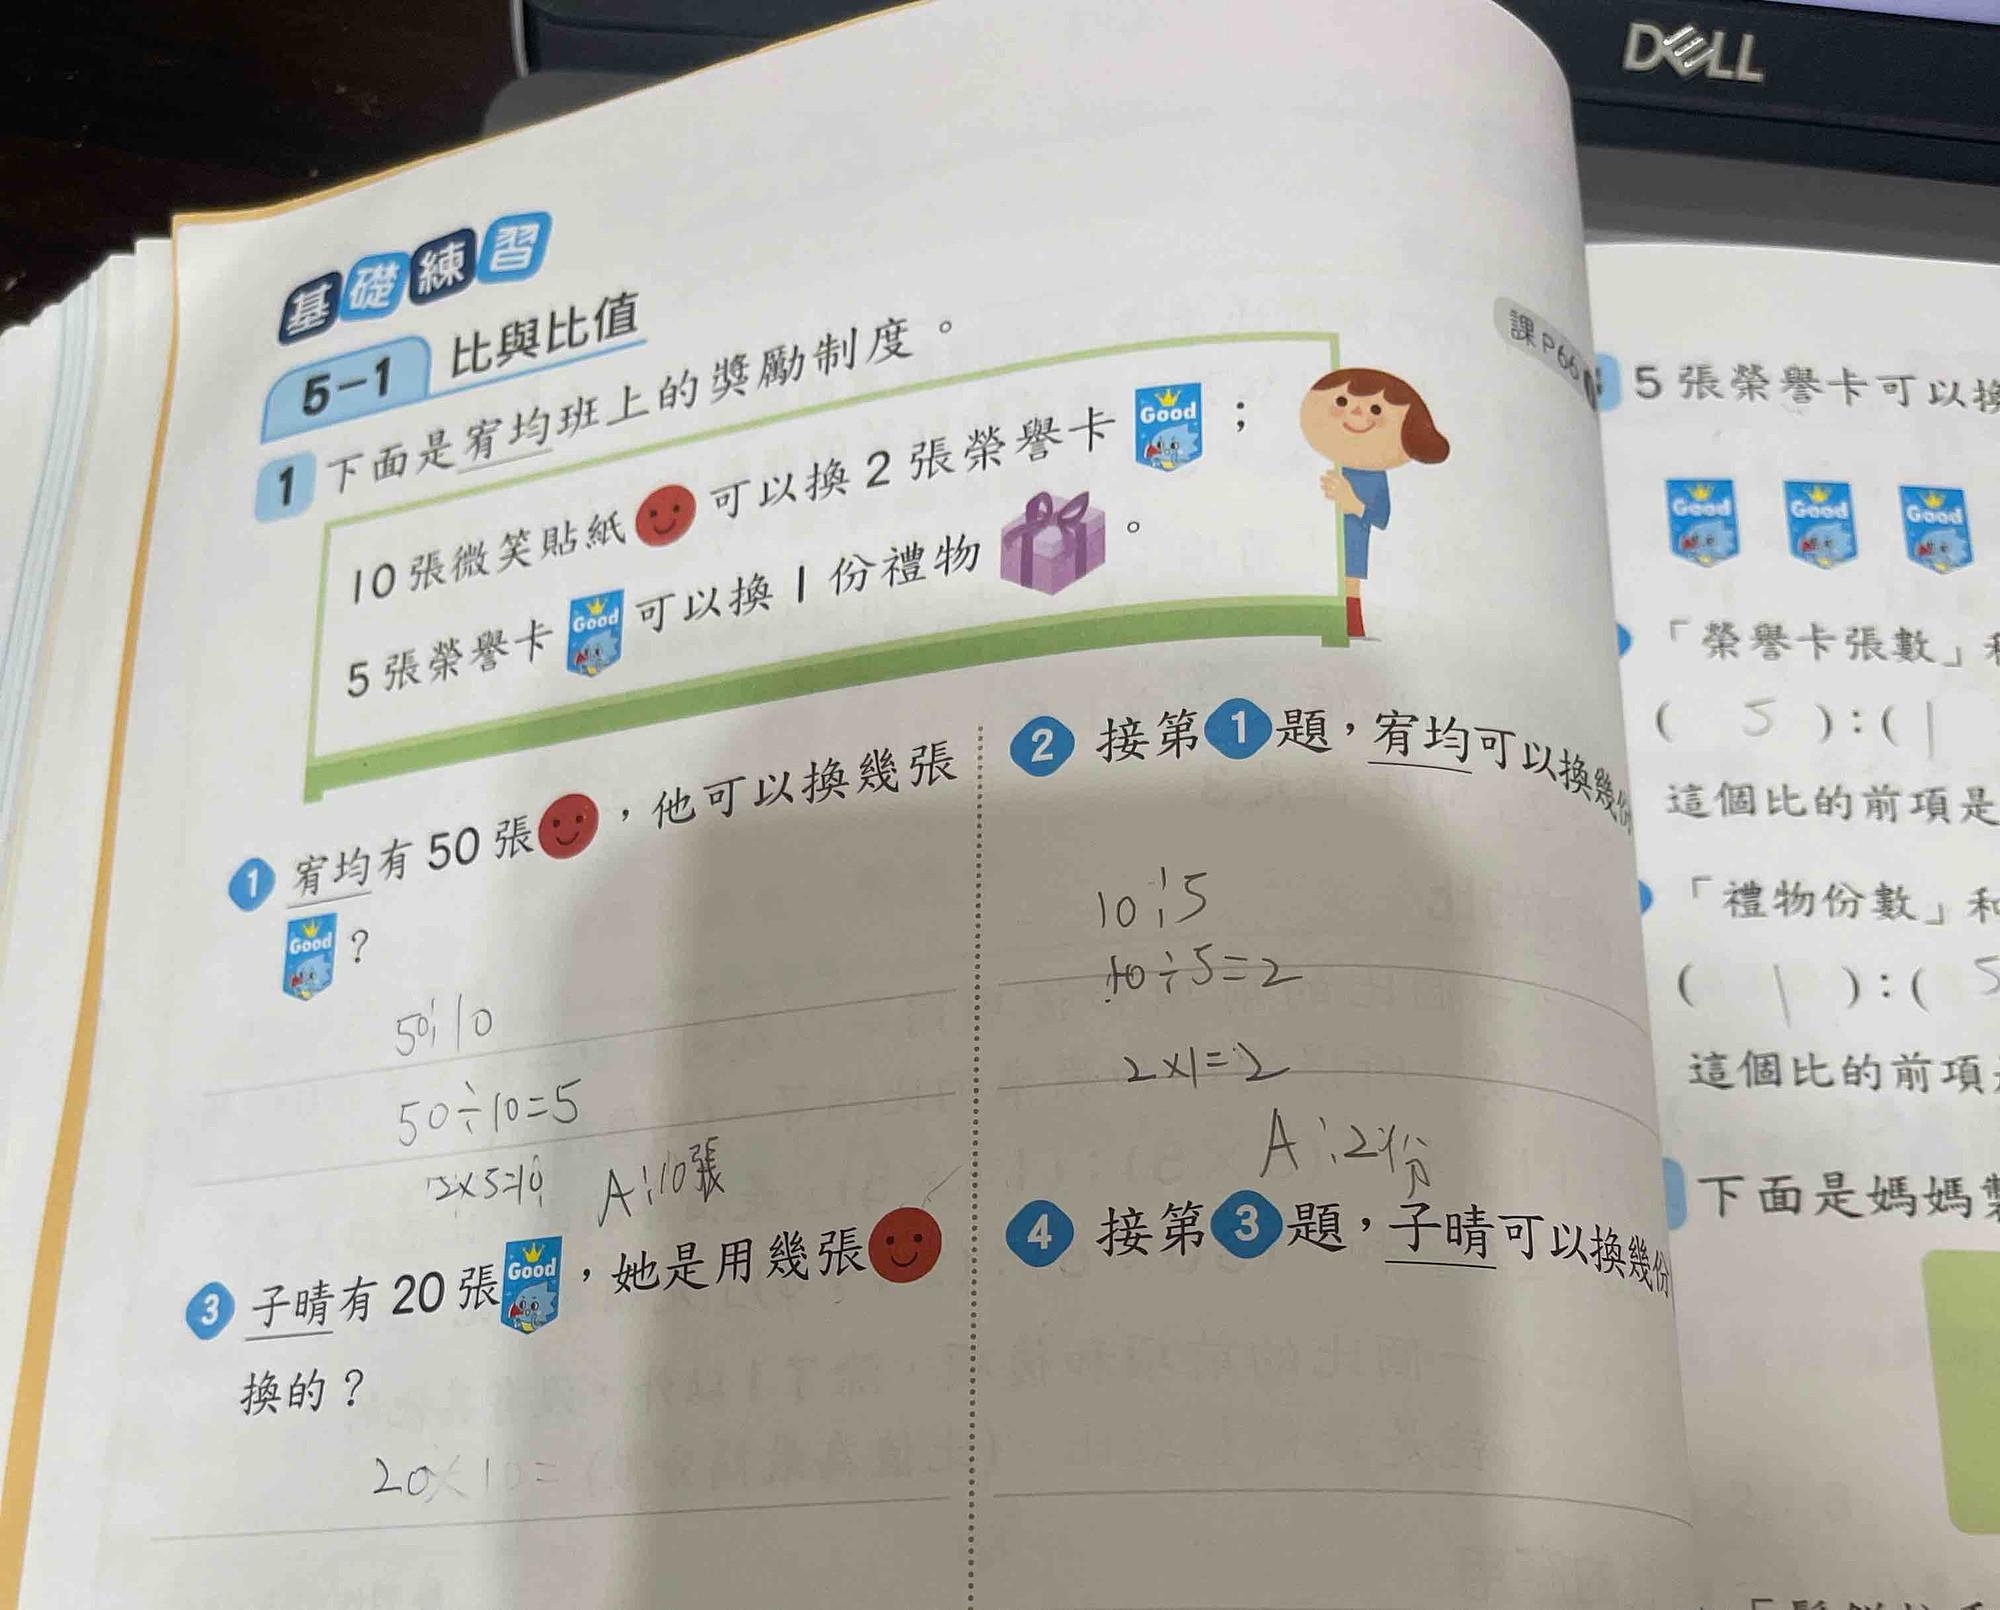 DELL
基礎練習
5-1 比與比值
課P66
1 下面是宥均班上的獎勵制度。
10張微笑貼紙可以換2張榮譽卡Good；
5張榮譽卡Good可以換1份禮物。
1 宥均有50張，他可以換幾張
Good？
50:10
50÷10=5
2×5=10 A:10張
2 接第1題，宥均可以換幾份
10:5
10÷5=2
2×1=2
A:2份
3 子晴有20張Good，她是用幾張
換的？
20×10=
4 接第3題，子晴可以換幾份
5張榮譽卡可以換
Good Good Good
「榮譽卡張數」和
( 5 ):( 1
這個比的前項是
「禮物份數」和
( 1 ):( 5
這個比的前項
下面是媽媽製